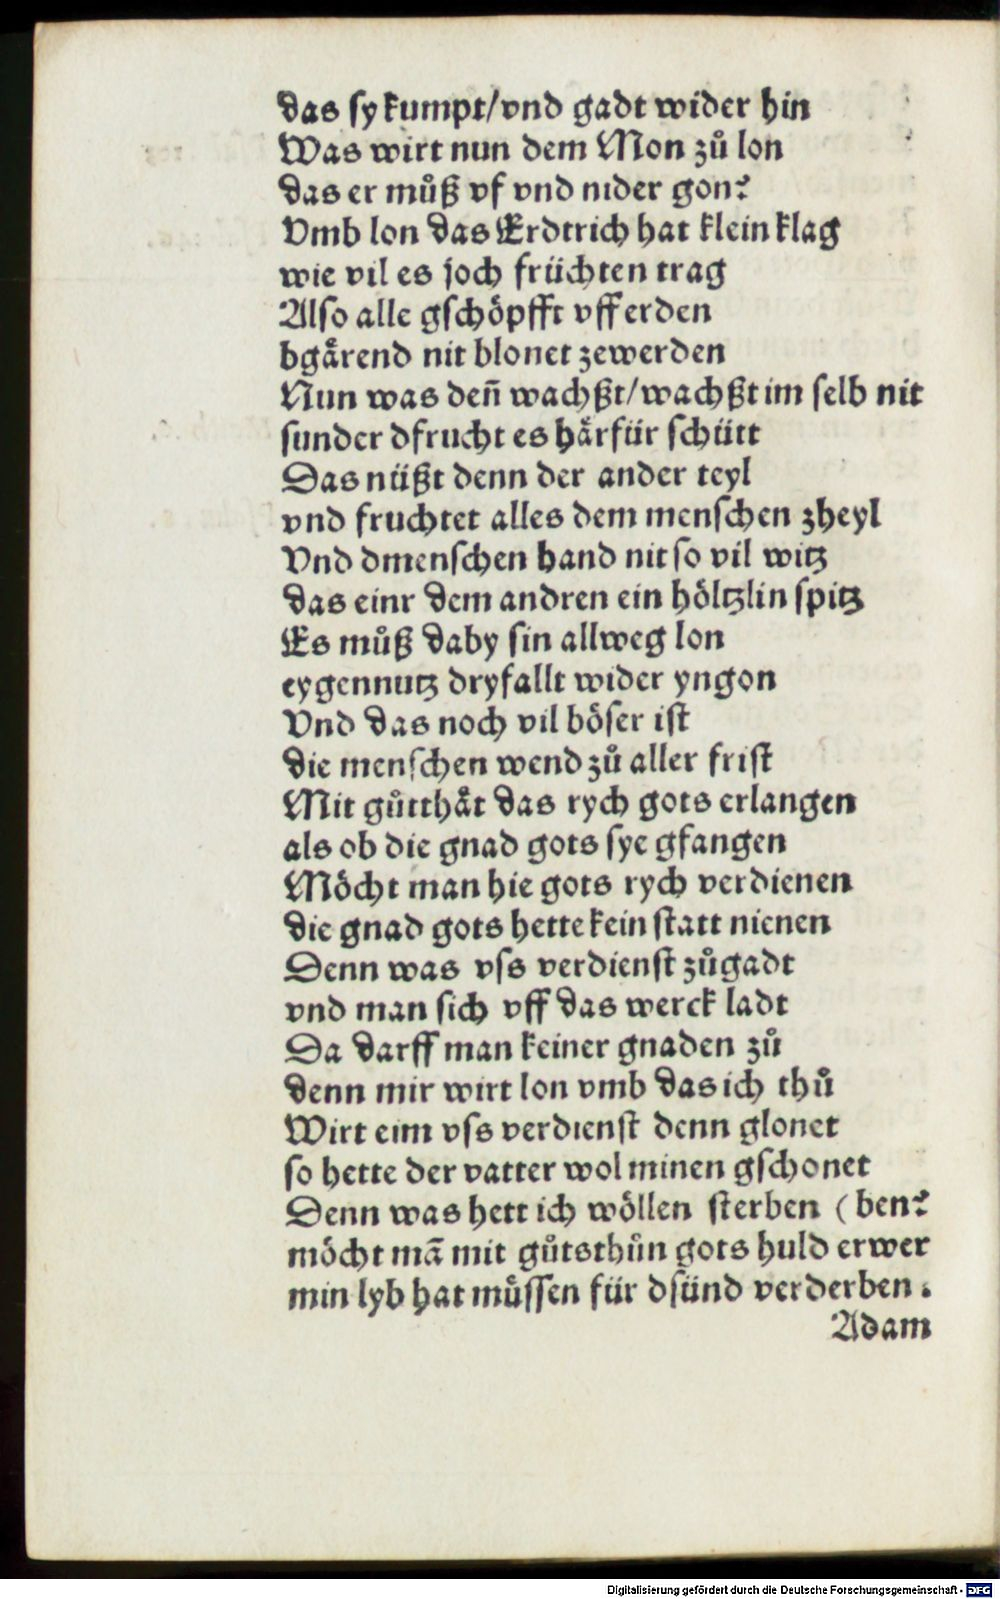 das sy kumpt/vnd gadt wider hin
Was wirt nun dem Mon zů lon
das er můß vf vnd nider gon?
Vmb lon das Erdtrich hat klein klag
wie vil es joch früchten trag
Also alle gschöpfft vff erden
bgårend nit blonet zewerden
Nun was deñ wachßt/wachßt im selb nit
sunder dfrucht es hårfür schütt
Das nüßt denn der ander teyl
vnd fruchtet alles dem menschen zheyl
Vnd dmenschen hand nit so vil witz
das einr dem andren ein höltzlin spitz
Es můß daby sin allweg lon
eygennutz dryfallt wider yngon
Vnd das noch vil böser ist
die menschen wend zů aller frist
Mit gůtthåt das rych gots erlangen
als ob die gnad gots sye gfangen
Möcht man hie gots rych verdienen
die gnad gots hette kein statt nienen
Denn was vss verdienst zůgadt
vnd man sich vff das werck ladt
Da darff man keiner gnaden zů
denn mir wirt lon vmb das ich thů
Wirt eim vss verdienst denn glonet
so hette der vatter wol minen gschonet
Denn was hett ich wöllen sterben (ben?
möcht mã mit gůtsthůn gots huld erwer
min lyb hat můssen für dsünd verderben.
Adam
Digitalisierung gefördert durch die Deutsche Forschungsgemeinschaft - DFG